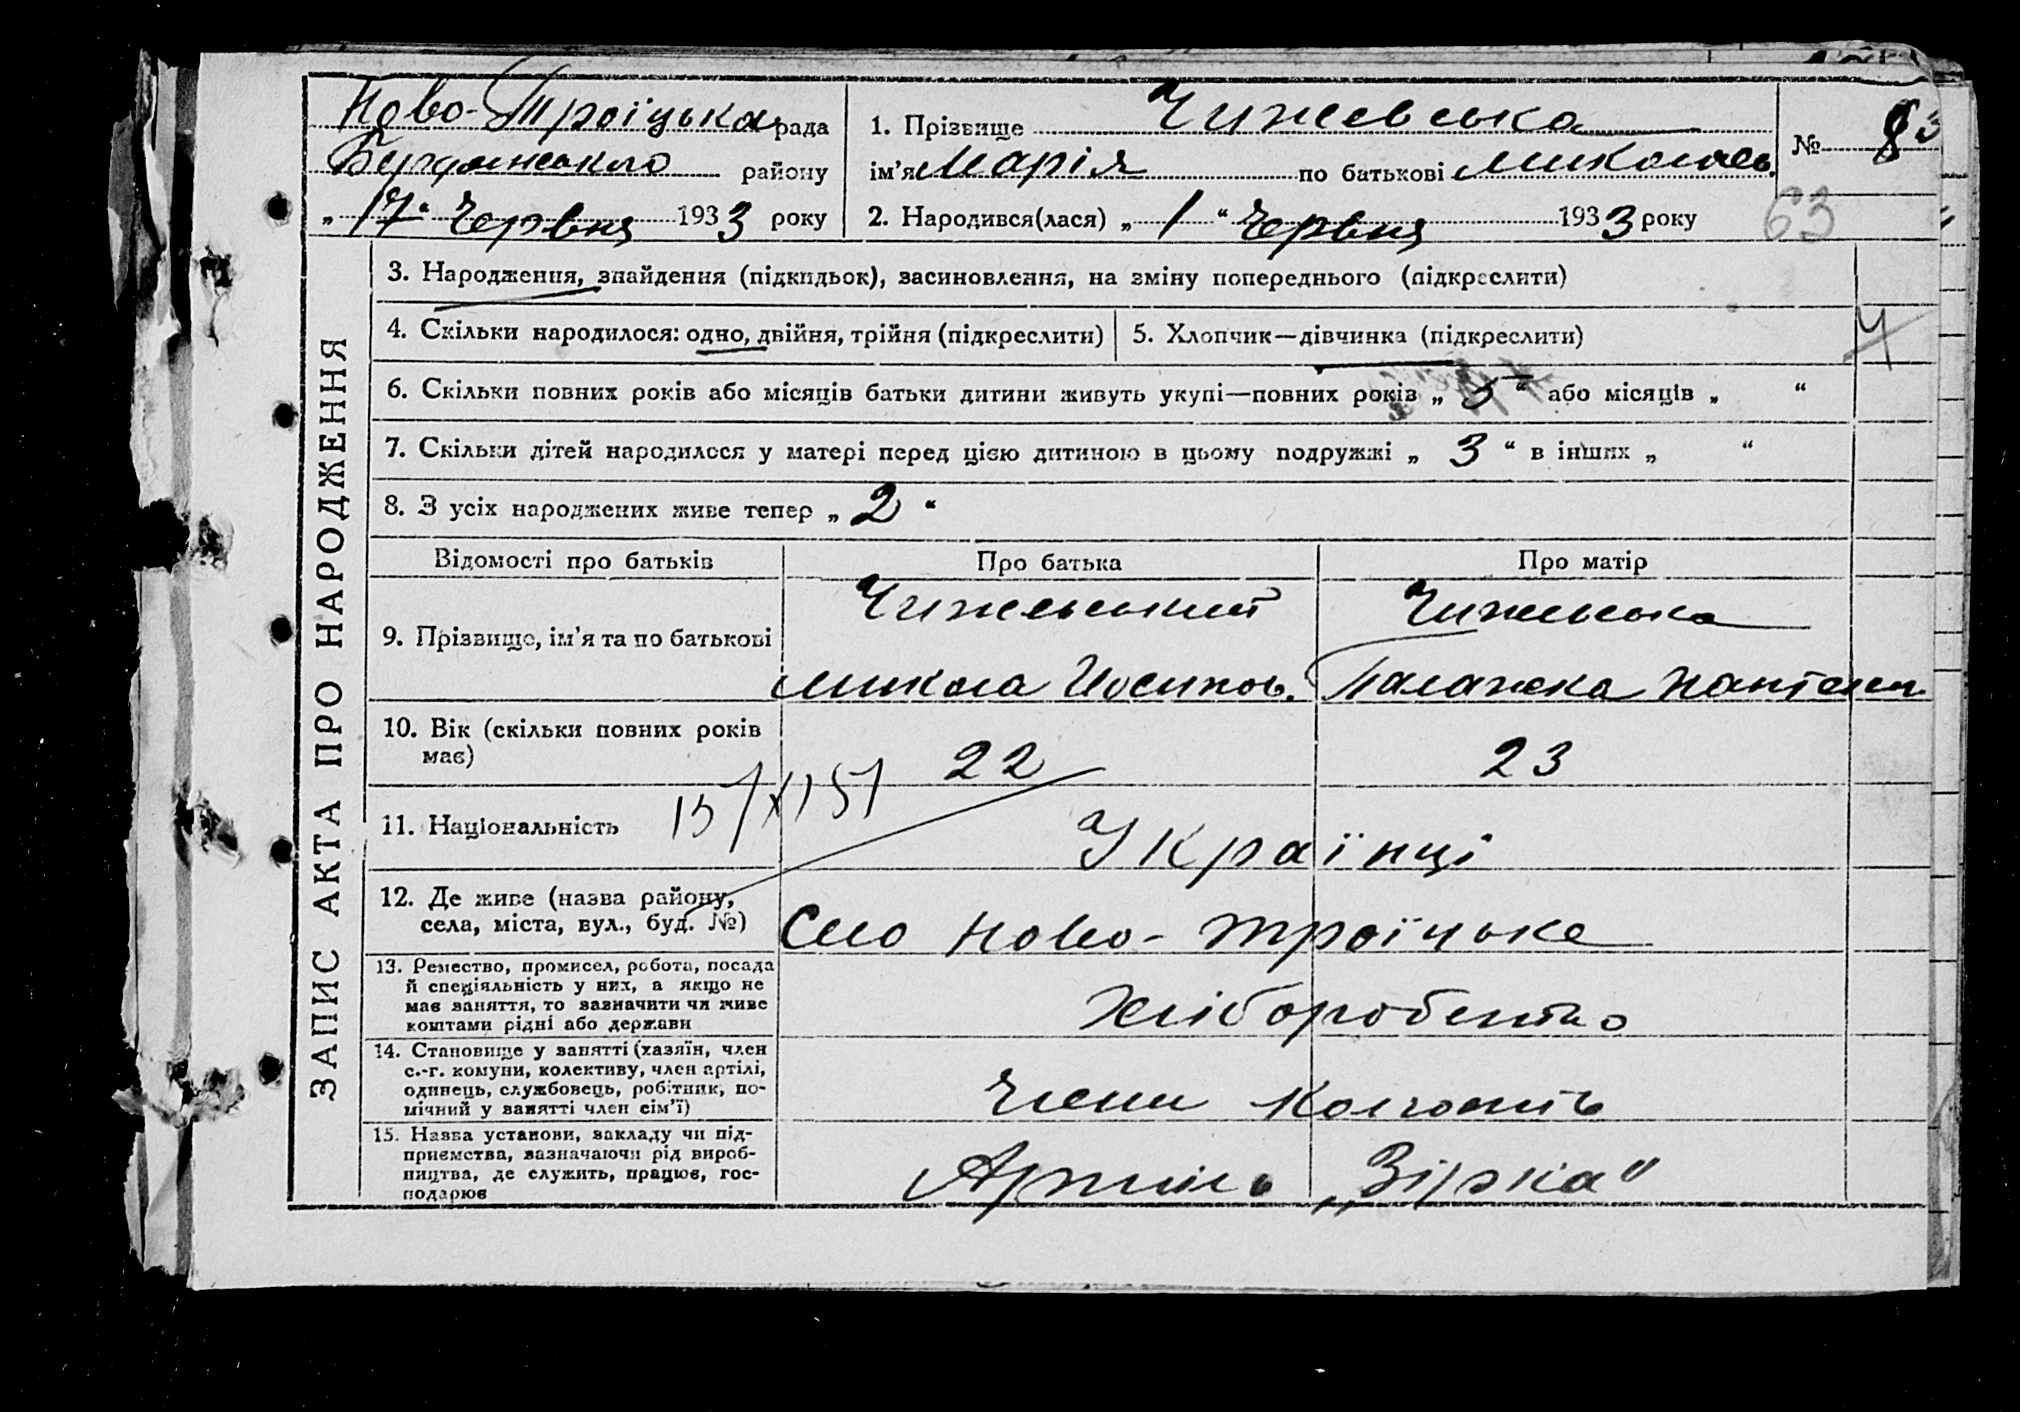 Ново-Троїцька рада
Бердянського району
„ 17 “ Червня 1933 року
1. Прізвище Чижевська
ім’я Марія по батькові Миколаєв.
2. Народився(лася) „ 1 “ Червня 1933 року
№ 83
63
ЗАПИС АКТА ПРО НАРОДЖЕННЯ
3. Народження, знайдення (підкидьок), засиновлення, на зміну попереднього (підкреслити)
4. Скільки народилося: одно, двійня, трійня (підкреслити)
5. Хлопчик—дівчинка (підкреслити)
6. Скільки повних років або місяців батьки дитини живуть укупі—повних років „ 5 “ або місяців „ “
7. Скільки дітей народилося у матері перед цією дитиною в цьому подружжі „ 3 “ в інших „ “
8. З усіх народжених живе тепер „ 2 “
Відомості про батьків Про батька Про матір
9. Прізвище, ім’я та по батькові
Чижевський
Микола Йосипов.
Чижевська
Палажка Пантелем
10. Вік (скільки повних років
має)
22 23
11. Національність
Українці
12. Де живе (назва району,
села, міста, вул., буд. №)
Село Ново-Троїцьке
13. Ремество, промисел, робота, посада
й спеціяльність у них, а якщо не
має заняття, то зазначити чи живе
коштами рідні або держави
Хліборобство
14. Становище у занятті (хазяїн, член
с.-г. комуни, колективу, член артілі,
одинець, службовець, робітник, по-
мічний у занятті член сім’ї)
Члени колгоспу
15. Назва установи, закладу чи під-
приємства, зазначаючи рід вироб-
ництва, де служить, працює, гос-
подарює
Артіль „Зірка“